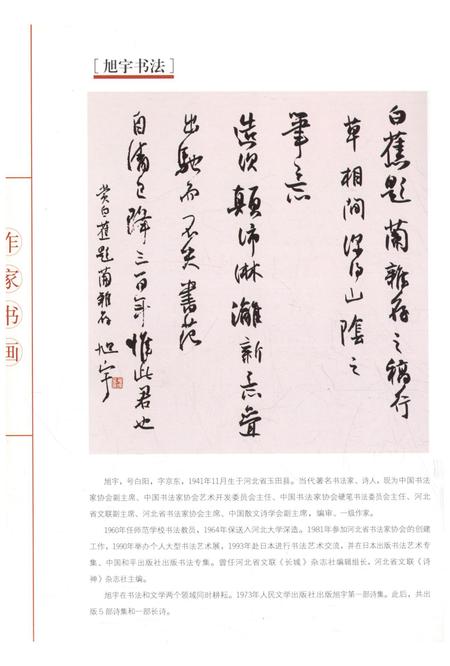 [旭宇书法]
白蕉題蘭雜存之稿行
草相間深得山陰之
筆意
造次顛沛淋漓新意疊
出馳而不失書范
自清之降三百年惟此君也
賞白蕉題蘭雜存 旭宇
作家书画
旭宇，号白阳，字京东，1941年11月生于河北省玉田县。当代著名书法家、诗人，现为中国书法
家协会副主席、中国书法家协会艺术开发委员会主任、中国书法家协会硬笔书法委员会主任、河北
省文联副主席、河北省书法家协会主席、中国散文诗学会副主席，编审、一级作家。
1960年任师范学校书法教员，1964年保送入河北大学深造。1981年参加河北省书法家协会的创建
工作，1990年举办个人大型书法艺术展，1993年赴日本进行书法艺术交流，并在日本出版书法艺术专
集、中国和平出版社出版书法专集。曾任河北省文联《长城》杂志社编辑组长，河北省文联《诗
神》杂志社主编。
旭宇在书法和文学两个领域同时耕耘。1973年人民文学出版社出版旭宇第一部诗集。此后，共出
版5部诗集和一部长诗。